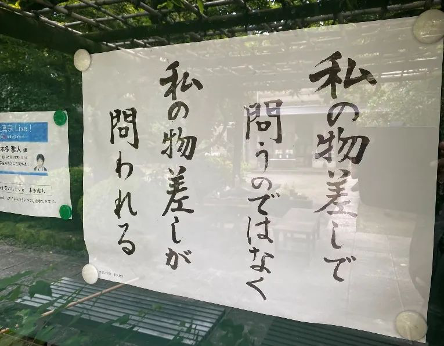 私の物差しで
問うのではなく
私の物差しが
問われる